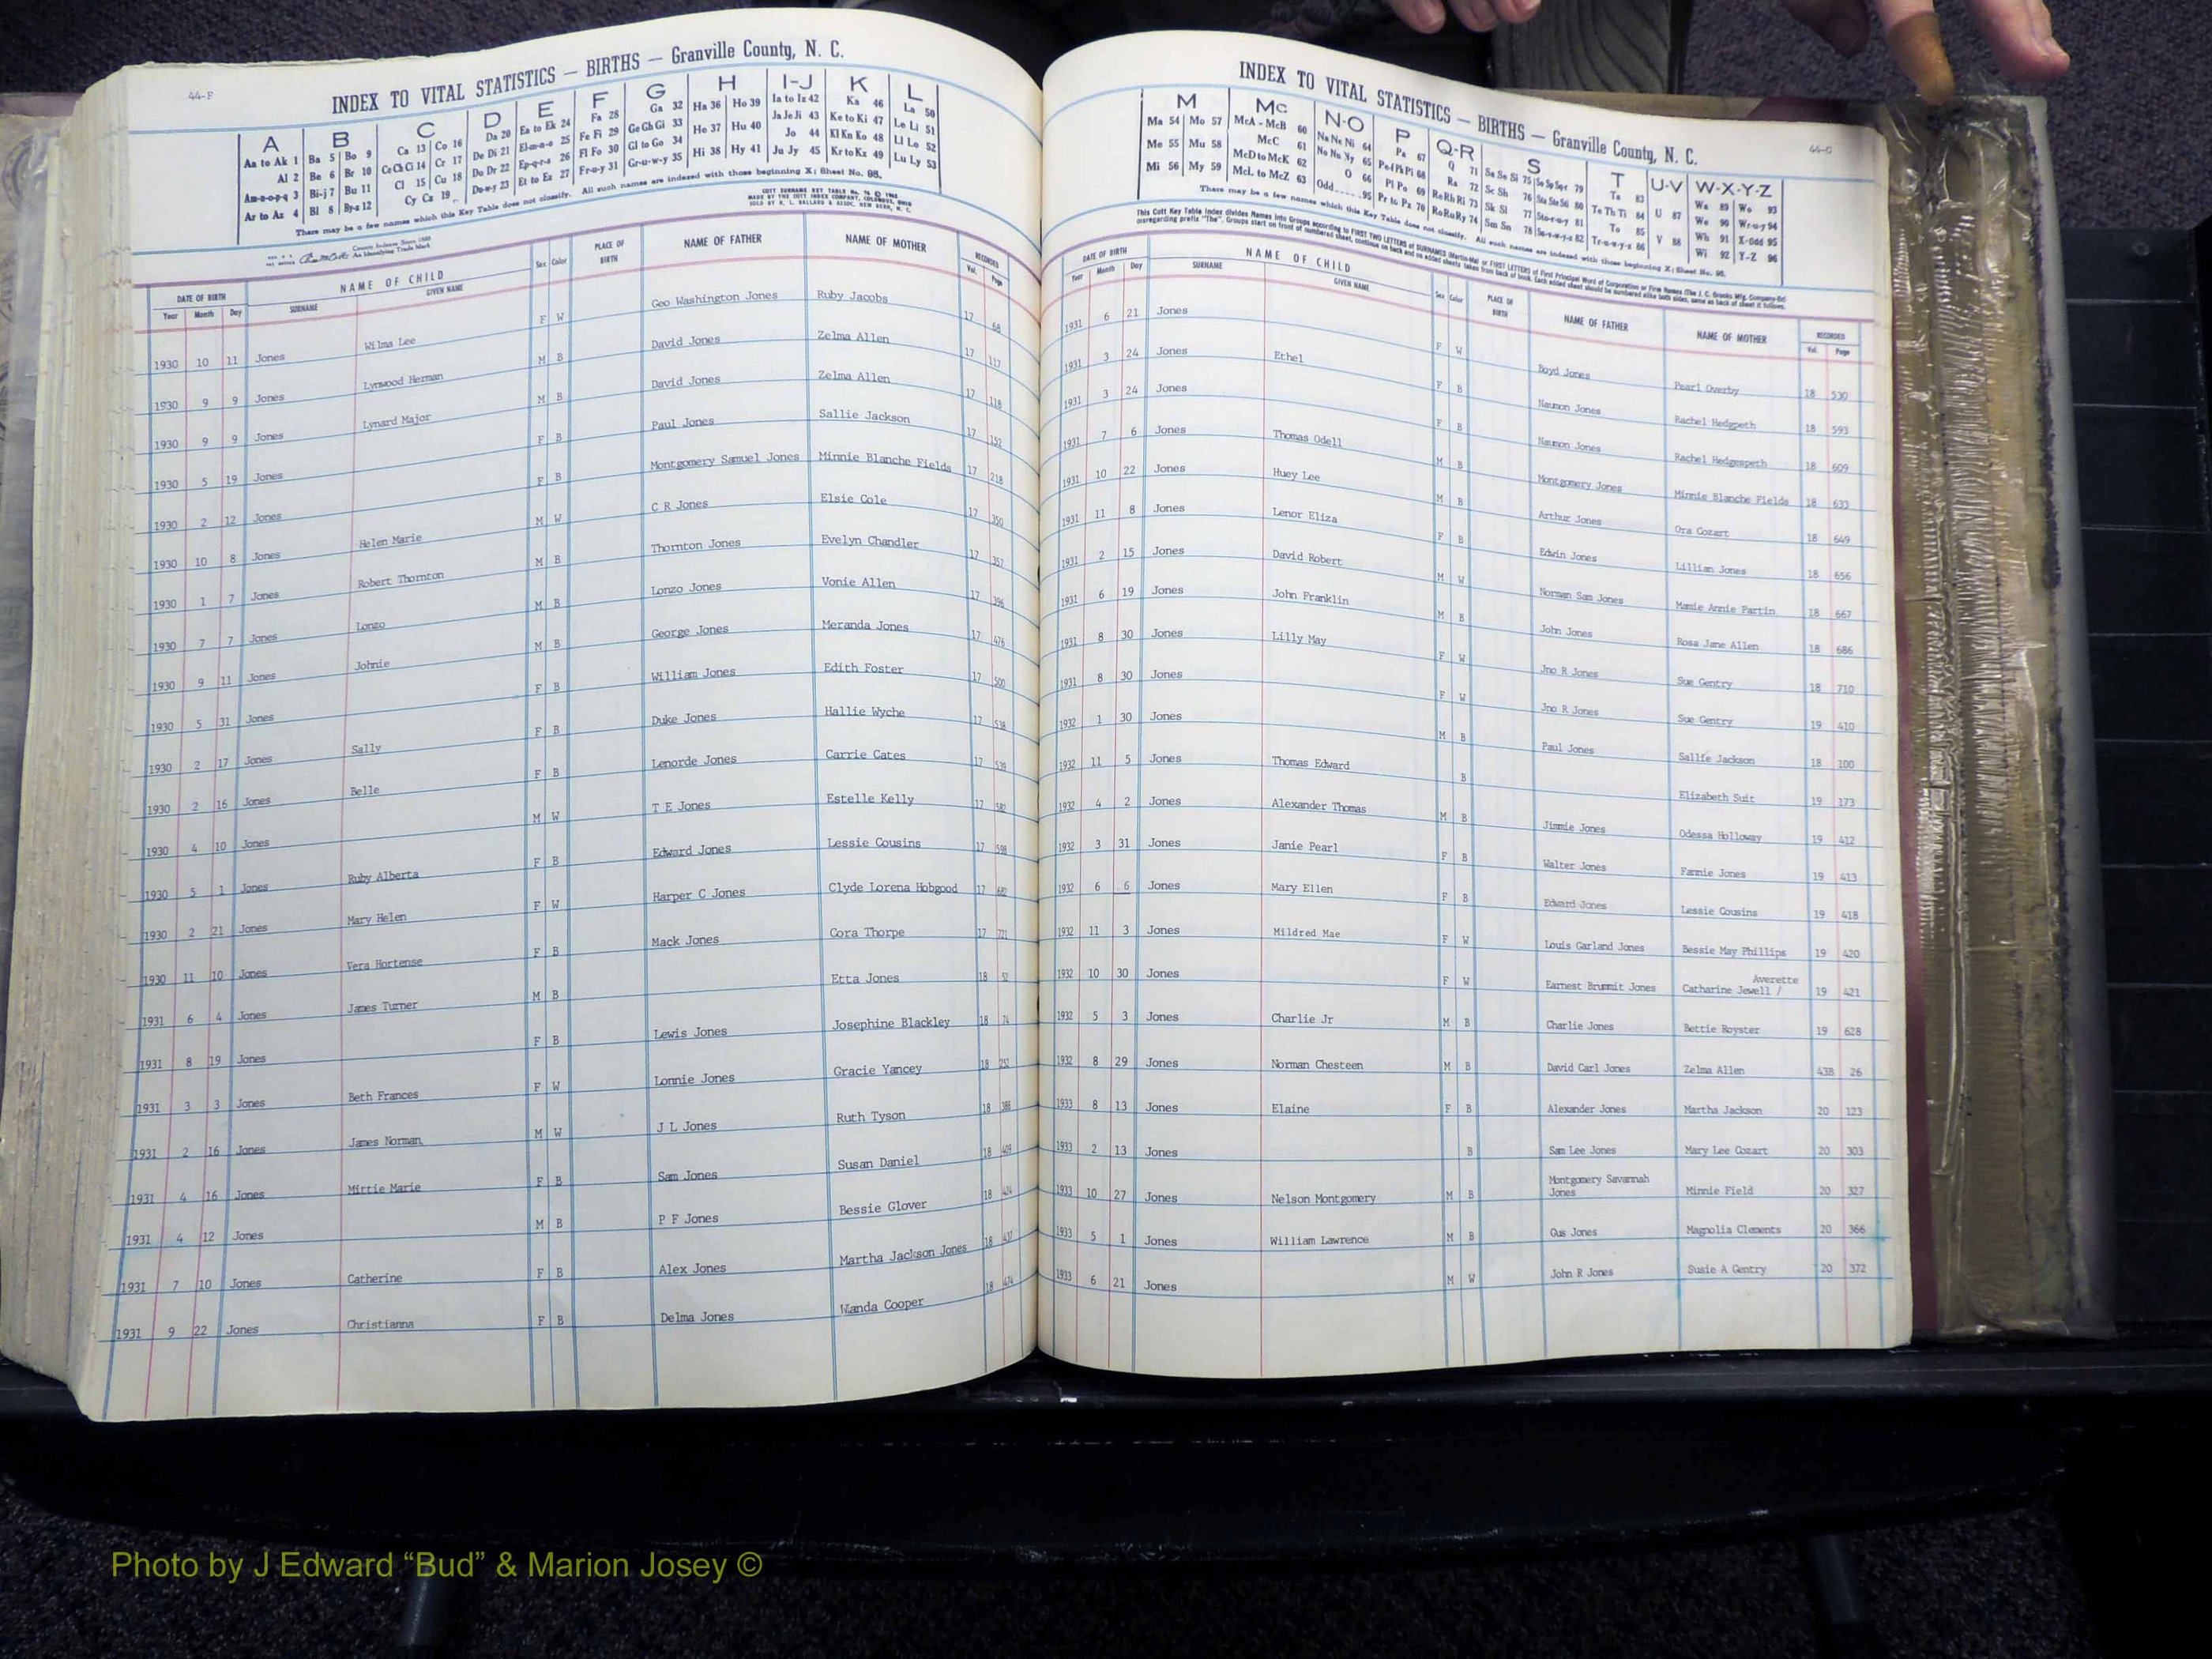 44-F
INDEX TO VITAL STATISTICS — BIRTHS — Granville County, N. C.
A B C D E F G H I-J K L
Aa to Ak 1 Ba 5 Bo 9 Ca 13 Co 16 Da 20 Ea to Ek 24 Fa 28 Ga 32 Ha 36 Ho 39 Ia to Iz 42 Ka 46 La 50
Al 2 Be 6 Br 10 Ce Ch Ci 14 Cr 17 De Di 21 El-m-n-o 25 Fe Fi 29 Ge Gh Gi 33 He 37 Hu 40 Ja Je Ji 43 Ke to Ki 47 Le Li 51
Am-n-o-p-q 3 Bi-j 7 Bu 11 Cl 15 Cu 18 Do Dr 22 Ep-q-r-s 26 Fl Fo 30 Gl to Go 34 Hi 38 Hy 41 Jo 44 Kl Kn Ko 48 Ll Lo 52
Ar to Az 4 Bl 8 By-z 12 Cy Cz 19 Du-w-y 23 Et to Ez 27 Fr-u-y 31 Gr-u-w-y 35 Ju Jy 45 Kr to Kz 49 Lu Ly 53
There may be a few names which this Key Table does not classify. All such names are indexed with those beginning X; Sheet No. 95.
DATE OF BIRTH NAME OF CHILD Sex Color PLACE OF BIRTH NAME OF FATHER NAME OF MOTHER RECORDED
Year Month Day SURNAME GIVEN NAME Vol. Page
1930 10 11 Jones Wilma Lee F W Geo Washington Jones Ruby Jacobs 17 68
1930 9 9 Jones Lynwood Herman M B David Jones Zelma Allen 17 117
1930 9 9 Jones Lynard Major M B David Jones Zelma Allen 17 118
1930 5 19 Jones F B Paul Jones Sallie Jackson 17 152
1930 2 12 Jones F B Montgomery Samuel Jones Minnie Blanche Fields 17 218
1930 10 8 Jones Helen Marie M W C R Jones Elsie Cole 17 350
1930 1 7 Jones Robert Thornton M B Thornton Jones Evelyn Chandler 17 357
1930 7 7 Jones Lonzo M B Lonzo Jones Vonie Allen 17 396
1930 9 11 Jones Johnie M B George Jones Meranda Jones 17 476
1930 5 31 Jones F B William Jones Edith Foster 17 500
1930 2 17 Jones Sally F B Duke Jones Hallie Wyche 17 538
1930 2 16 Jones Belle F B Lenorde Jones Carrie Cates 17 539
1930 4 10 Jones M W T E Jones Estelle Kelly 17 582
1930 5 1 Jones Ruby Alberta F B Edward Jones Lessie Cousins 17 598
1930 2 21 Jones Mary Helen F W Harper C Jones Clyde Lorena Hobgood 17 682
1930 11 10 Jones Vera Hortense F B Mack Jones Cora Thorpe 17 721
1931 6 4 Jones James Turner M B Etta Jones 18 52
1931 8 19 Jones F B Lewis Jones Josephine Blackley 18 74
1931 3 3 Jones Beth Frances F W Lonnie Jones Gracie Yancey 18 252
1931 2 16 Jones James Norman M W J L Jones Ruth Tyson 18 388
1931 4 16 Jones Mittie Marie F B Sam Jones Susan Daniel 18 409
1931 4 12 Jones M B P F Jones Bessie Glover 18 424
1931 7 10 Jones Catherine F B Alex Jones Martha Jackson Jones 18 437
1931 9 22 Jones Christianna F B Delma Jones Wanda Cooper 18 474
44-G
INDEX TO VITAL STATISTICS — BIRTHS — Granville County, N. C.
M Mc N-O P Q-R S T U-V W-X-Y-Z
Ma 54 Mo 57 McA - McB 60 Na Ne Ni 64 Pa 67 Q 71 Sa Se Si 75 Ta 83 Wa 89 Wo 93
Me 55 Mu 58 McC 61 No Nu Ny 65 Pe-f Ph Pi 68 Ra 72 Sc Sh 76 Te Th Ti 84 U 87 We 90 Wr-u-y 94
Mi 56 My 59 McD to McK 62 O 66 Pl Po 69 Re Rh Ri 73 Sk Sl 77 To 85 V 88 Wh 91 X-Odd 95
McL to McZ 63 Odd 95 Pr to Pz 70 Ro Ru Ry 74 Sm Sn 78 Tr-u-w-y-z 86 Wi 92 Y-Z 96
There may be a few names which this Key Table does not classify. All such names are indexed with those beginning X; Sheet No. 95.
DATE OF BIRTH NAME OF CHILD Sex Color PLACE OF BIRTH NAME OF FATHER NAME OF MOTHER RECORDED
Year Month Day SURNAME GIVEN NAME Vol. Page
1931 6 21 Jones F W Boyd Jones Pearl Overby 18 530
1931 3 24 Jones Ethel F B Naumon Jones Rachel Hedgpeth 18 593
1931 3 24 Jones F B Naumon Jones Rachel Hedgespeth 18 609
1931 7 6 Jones Thomas Odell M B Montgomery Jones Minnie Blanche Fields 18 633
1931 10 22 Jones Huey Lee M B Arthur Jones Ora Cozart 18 649
1931 11 8 Jones Lenor Eliza F B Edwin Jones Lillian Jones 18 656
1931 2 15 Jones David Robert M W Norman Sam Jones Mamie Annie Partin 18 667
1931 6 19 Jones John Franklin M B John Jones Rosa Jane Allen 18 686
1931 8 30 Jones Lilly May F W Jno R Jones Sue Gentry 18 710
1931 8 30 Jones F W Jno R Jones Sue Gentry 19 410
1932 1 30 Jones M B Paul Jones Sallie Jackson 18 100
1932 11 5 Jones Thomas Edward B Elizabeth Suit 19 173
1932 4 2 Jones Alexander Thomas M B Jimmie Jones Odessa Holloway 19 412
1932 3 31 Jones Janie Pearl F B Walter Jones Fannie Jones 19 413
1932 6 6 Jones Mary Ellen F B Edward Jones Lessie Cousins 19 418
1932 11 3 Jones Mildred Mae F W Louis Garland Jones Bessie May Phillips 19 420
Averette
1932 10 30 Jones F W Earnest Brummit Jones Catharine Jewell / 19 421
1932 5 3 Jones Charlie Jr M B Charlie Jones Bettie Royster 19 628
1932 8 29 Jones Norman Chesteen M B David Carl Jones Zelma Allen 43B 26
1933 8 13 Jones Elaine F B Alexander Jones Martha Jackson 20 123
1933 2 13 Jones B Sam Lee Jones Mary Lee Cozart 20 303
Montgomery Savannah
1933 10 27 Jones Nelson Montgomery M B Jones Minnie Field 20 327
1933 5 1 Jones William Lawrence M B Gus Jones Magnolia Clements 20 366
1933 6 21 Jones M W John R Jones Susie A Gentry 20 372
Photo by J Edward “Bud” & Marion Josey ©